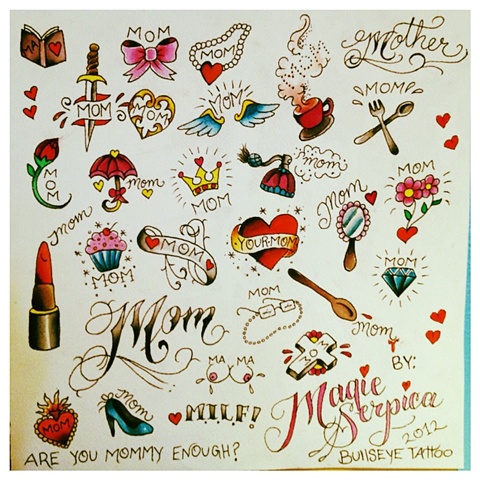 MA
MOM
MOM
Mother
MOM
MOM
MOM
MOM
MOM
MOM
mom
MOM
mom
Mom
MOM
mom
MOM
MOM
YOUR MOM
MOM
Mom
MOM
Mom
MOM
MA MA
MOM
Mom
MILF!
BY:
Magie
Serpica
2012
ARE YOU MOMMY ENOUGH?
BULLSEYE TATTOO